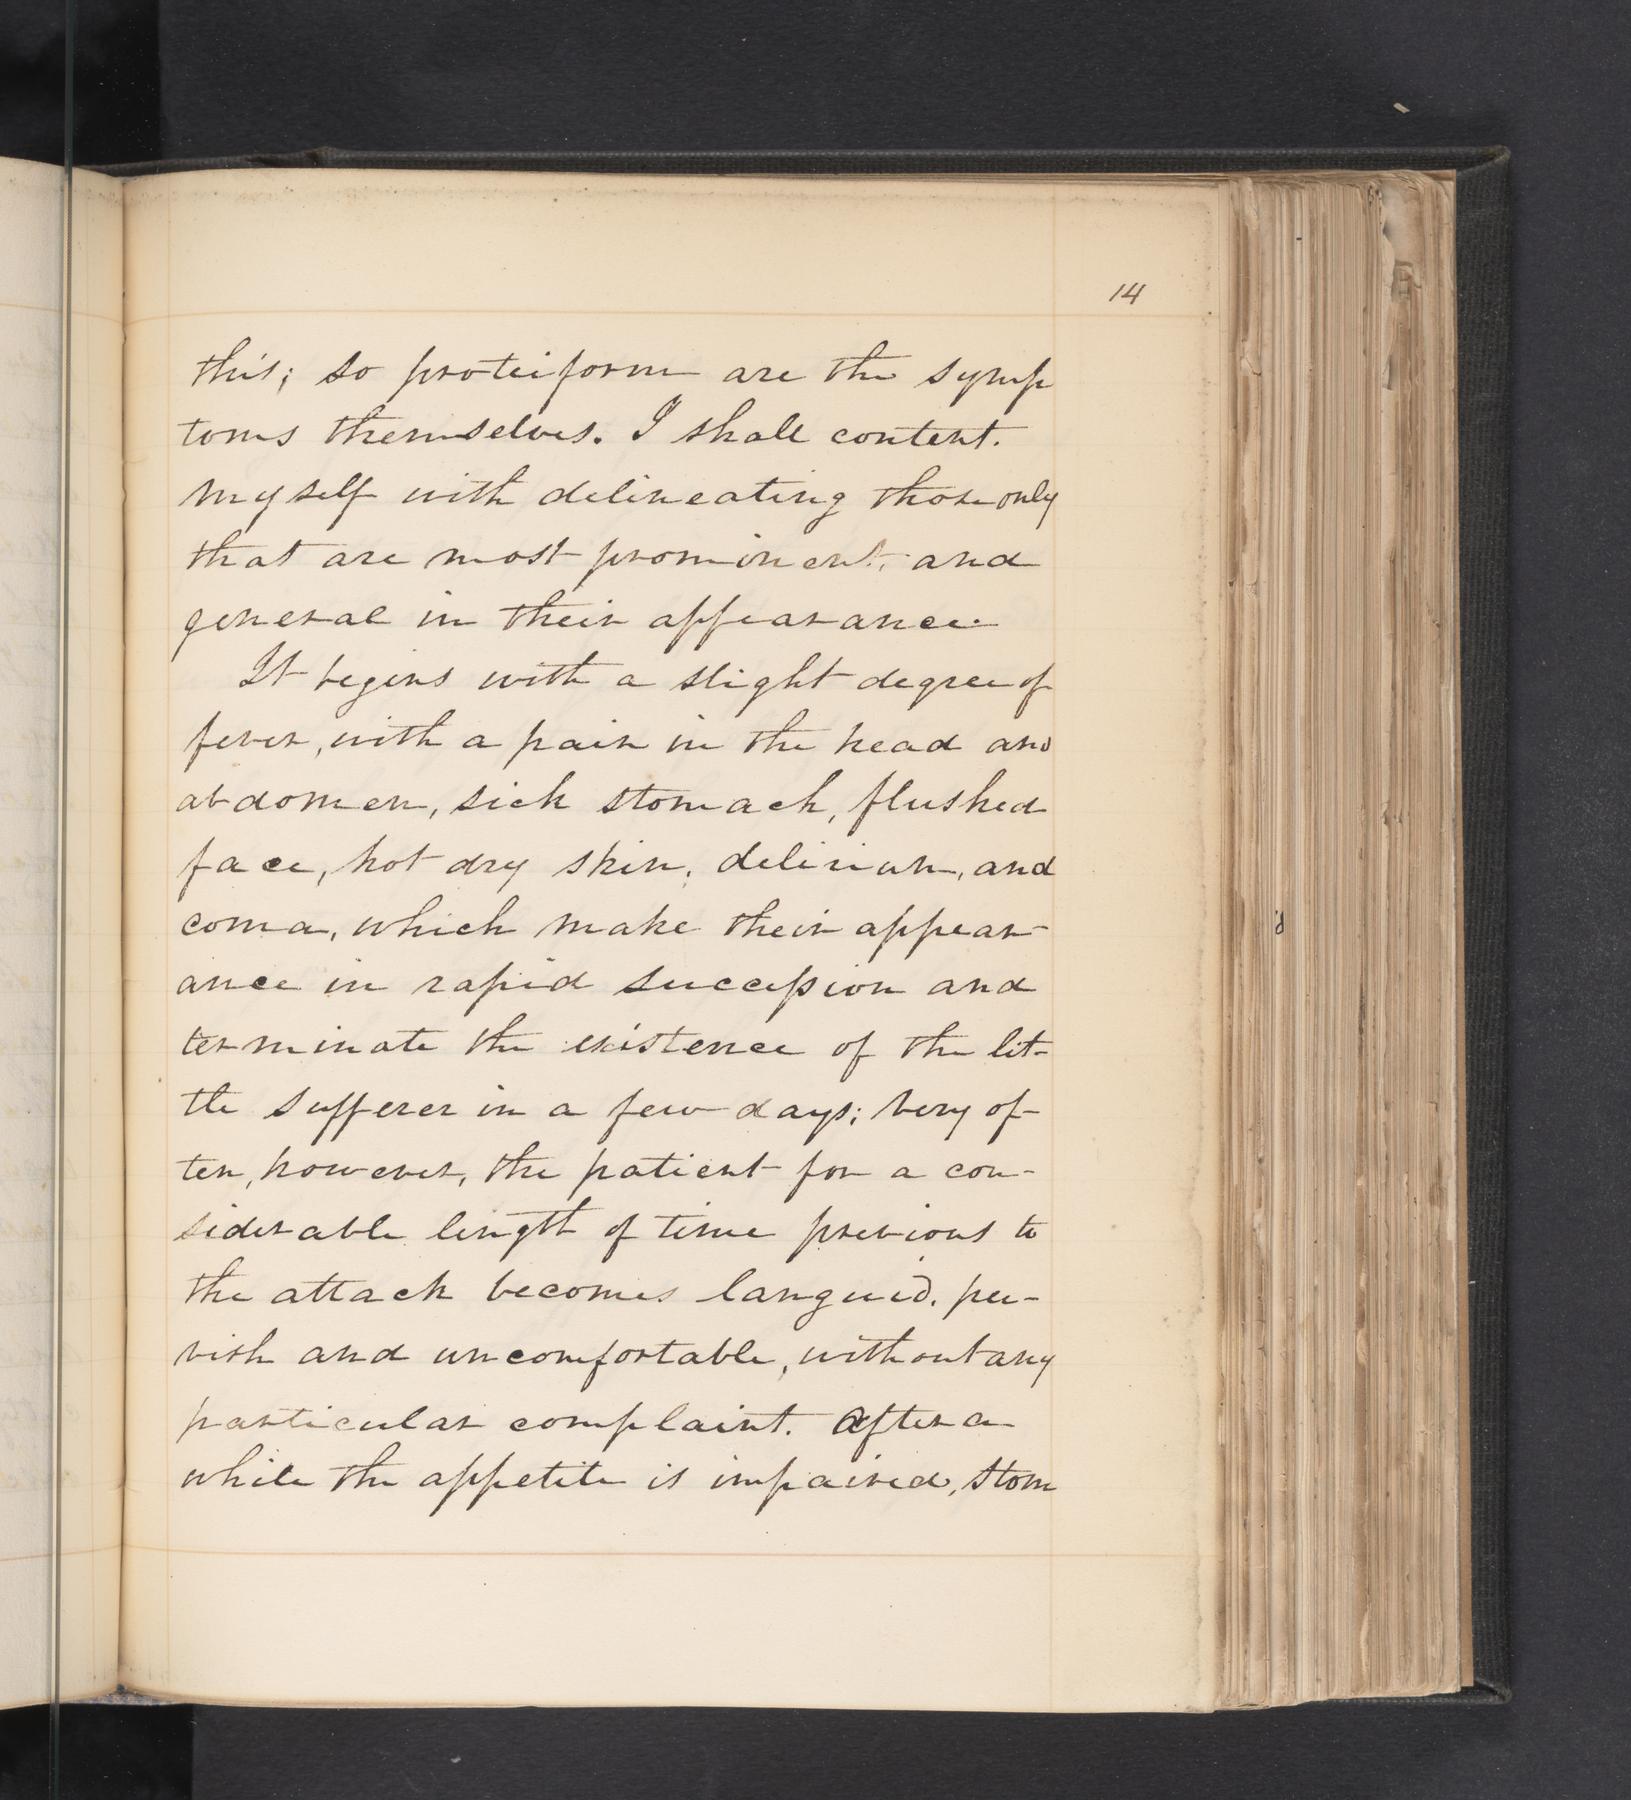 14
this; so proteiform are the symp
toms themselves. I shall content.
myself with delineating those only
that are most prominent, and
general in their appearance
It begins with a slight degree of
fever, with a pain in the head and
abdomen, sick stomach, flushed
face, hot dry skin, delirium, and
coma, which make their appear-
ance in rapid succession and
terminate the existence of the lit-
tle sufferer in a few days; very of-
ten, however, the patient for a con-
siderable length of time previous to
the attack becomes languid, pee-
vish and uncomfortable, without any
particular complaint. After a
while the appetite is impaired, stom